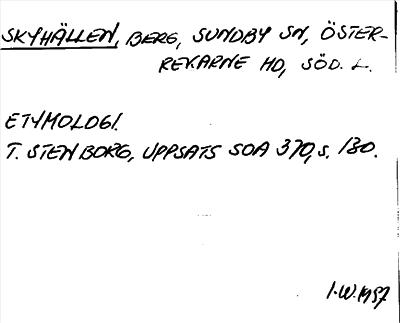 SKYHÄLLEN, BERG, SUNDBY SN, ÖSTER-
REKARNE HD, SÖD. L.
ETYMOLOGI.
T. STENBORG, UPPSATS SOA 370, S. 130.
I.W. 1957